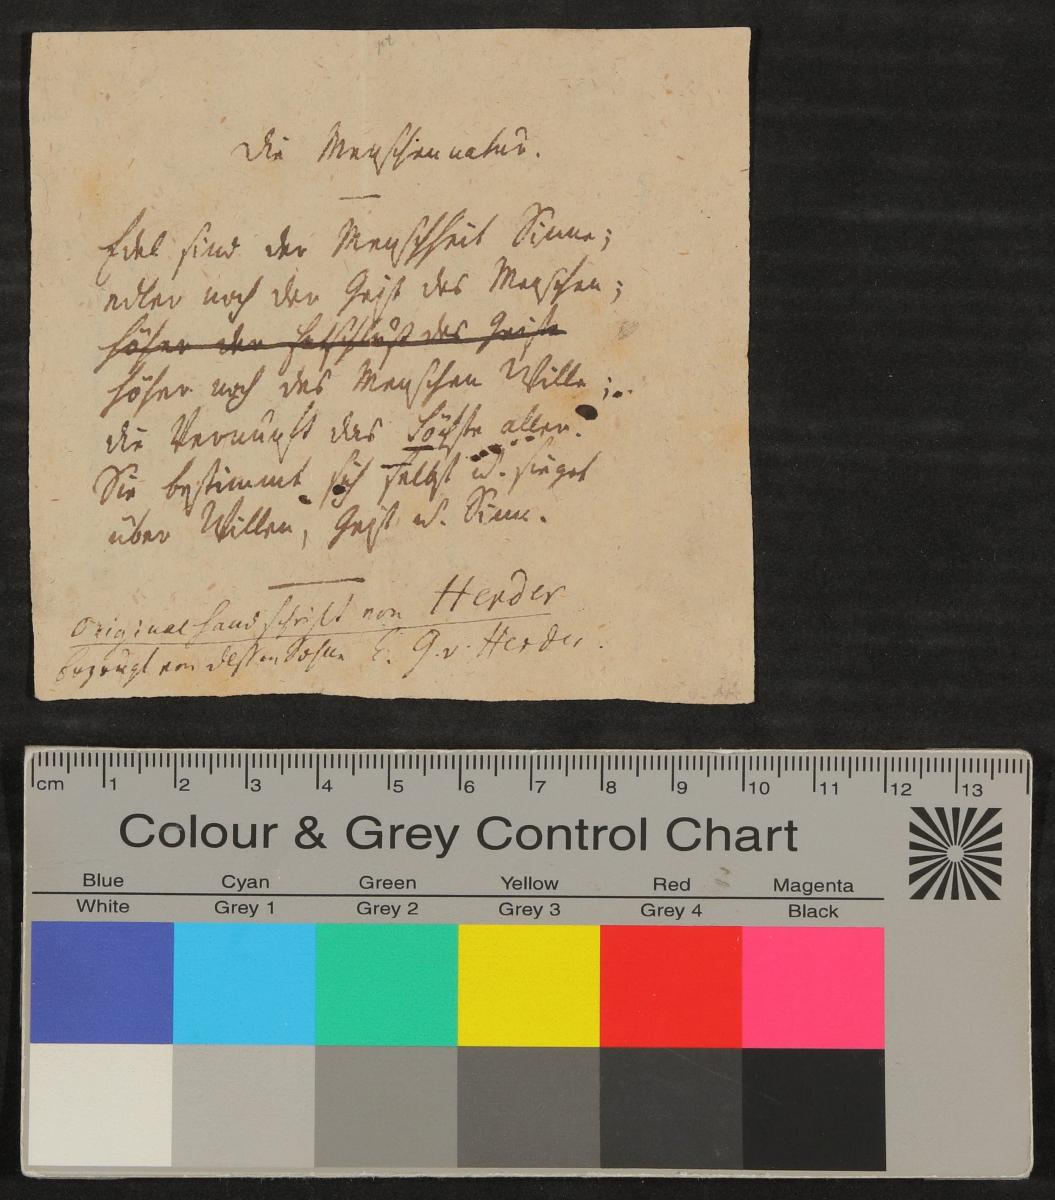 Die Menschennatur.
Edel sind der Menschheit Sinne;
edler noch der Geist des Menschen;
höher der Entschluß des Geists
höher noch des Menschen Wille;
die Vernunft das höchste aller.
Sie bestimmt sich selbst u. sieget
über Willen, Geist u. Sinn.
Originalhandschrift von Herder
bezeugt von dessen Sohne E. G. v. Herder.
cm 1 2 3 4 5 6 7 8 9 10 11 12 13
Colour & Grey Control Chart
Blue Cyan Green Yellow Red Magenta
White Grey 1 Grey 2 Grey 3 Grey 4 Black